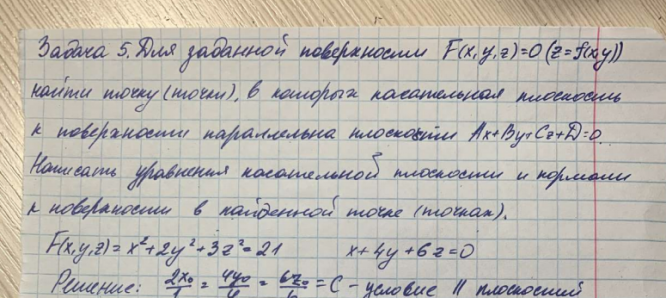 Задача 5. Для заданной поверхности F(x,y,z)=0 (z=f(x,y))
найти точку (точки), в которых касательная плоскость
к поверхности параллельна плоскости Ax+By+Cz+D=0.
Написать уравнения касательной плоскости и нормали
к поверхности в найденной точке (точках).
F(x,y,z) = x²+2y²+3z²=21 x+4y+6z=0
Решение: 2x₀/1 = 4y₀/4 = 6z₀/6 = C - условие || плоскостей